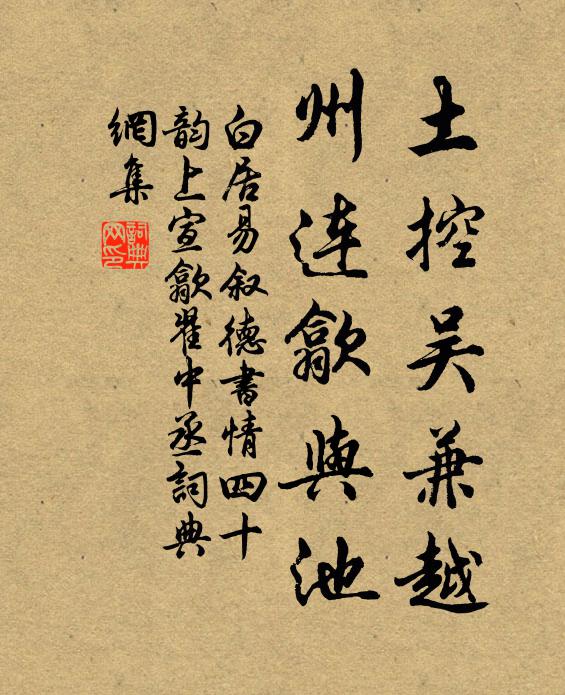 土控吴兼越
州连歙與池
白居易叙德書情四十
韵上宣歙翟中丞詞典
網集
詞典
网印